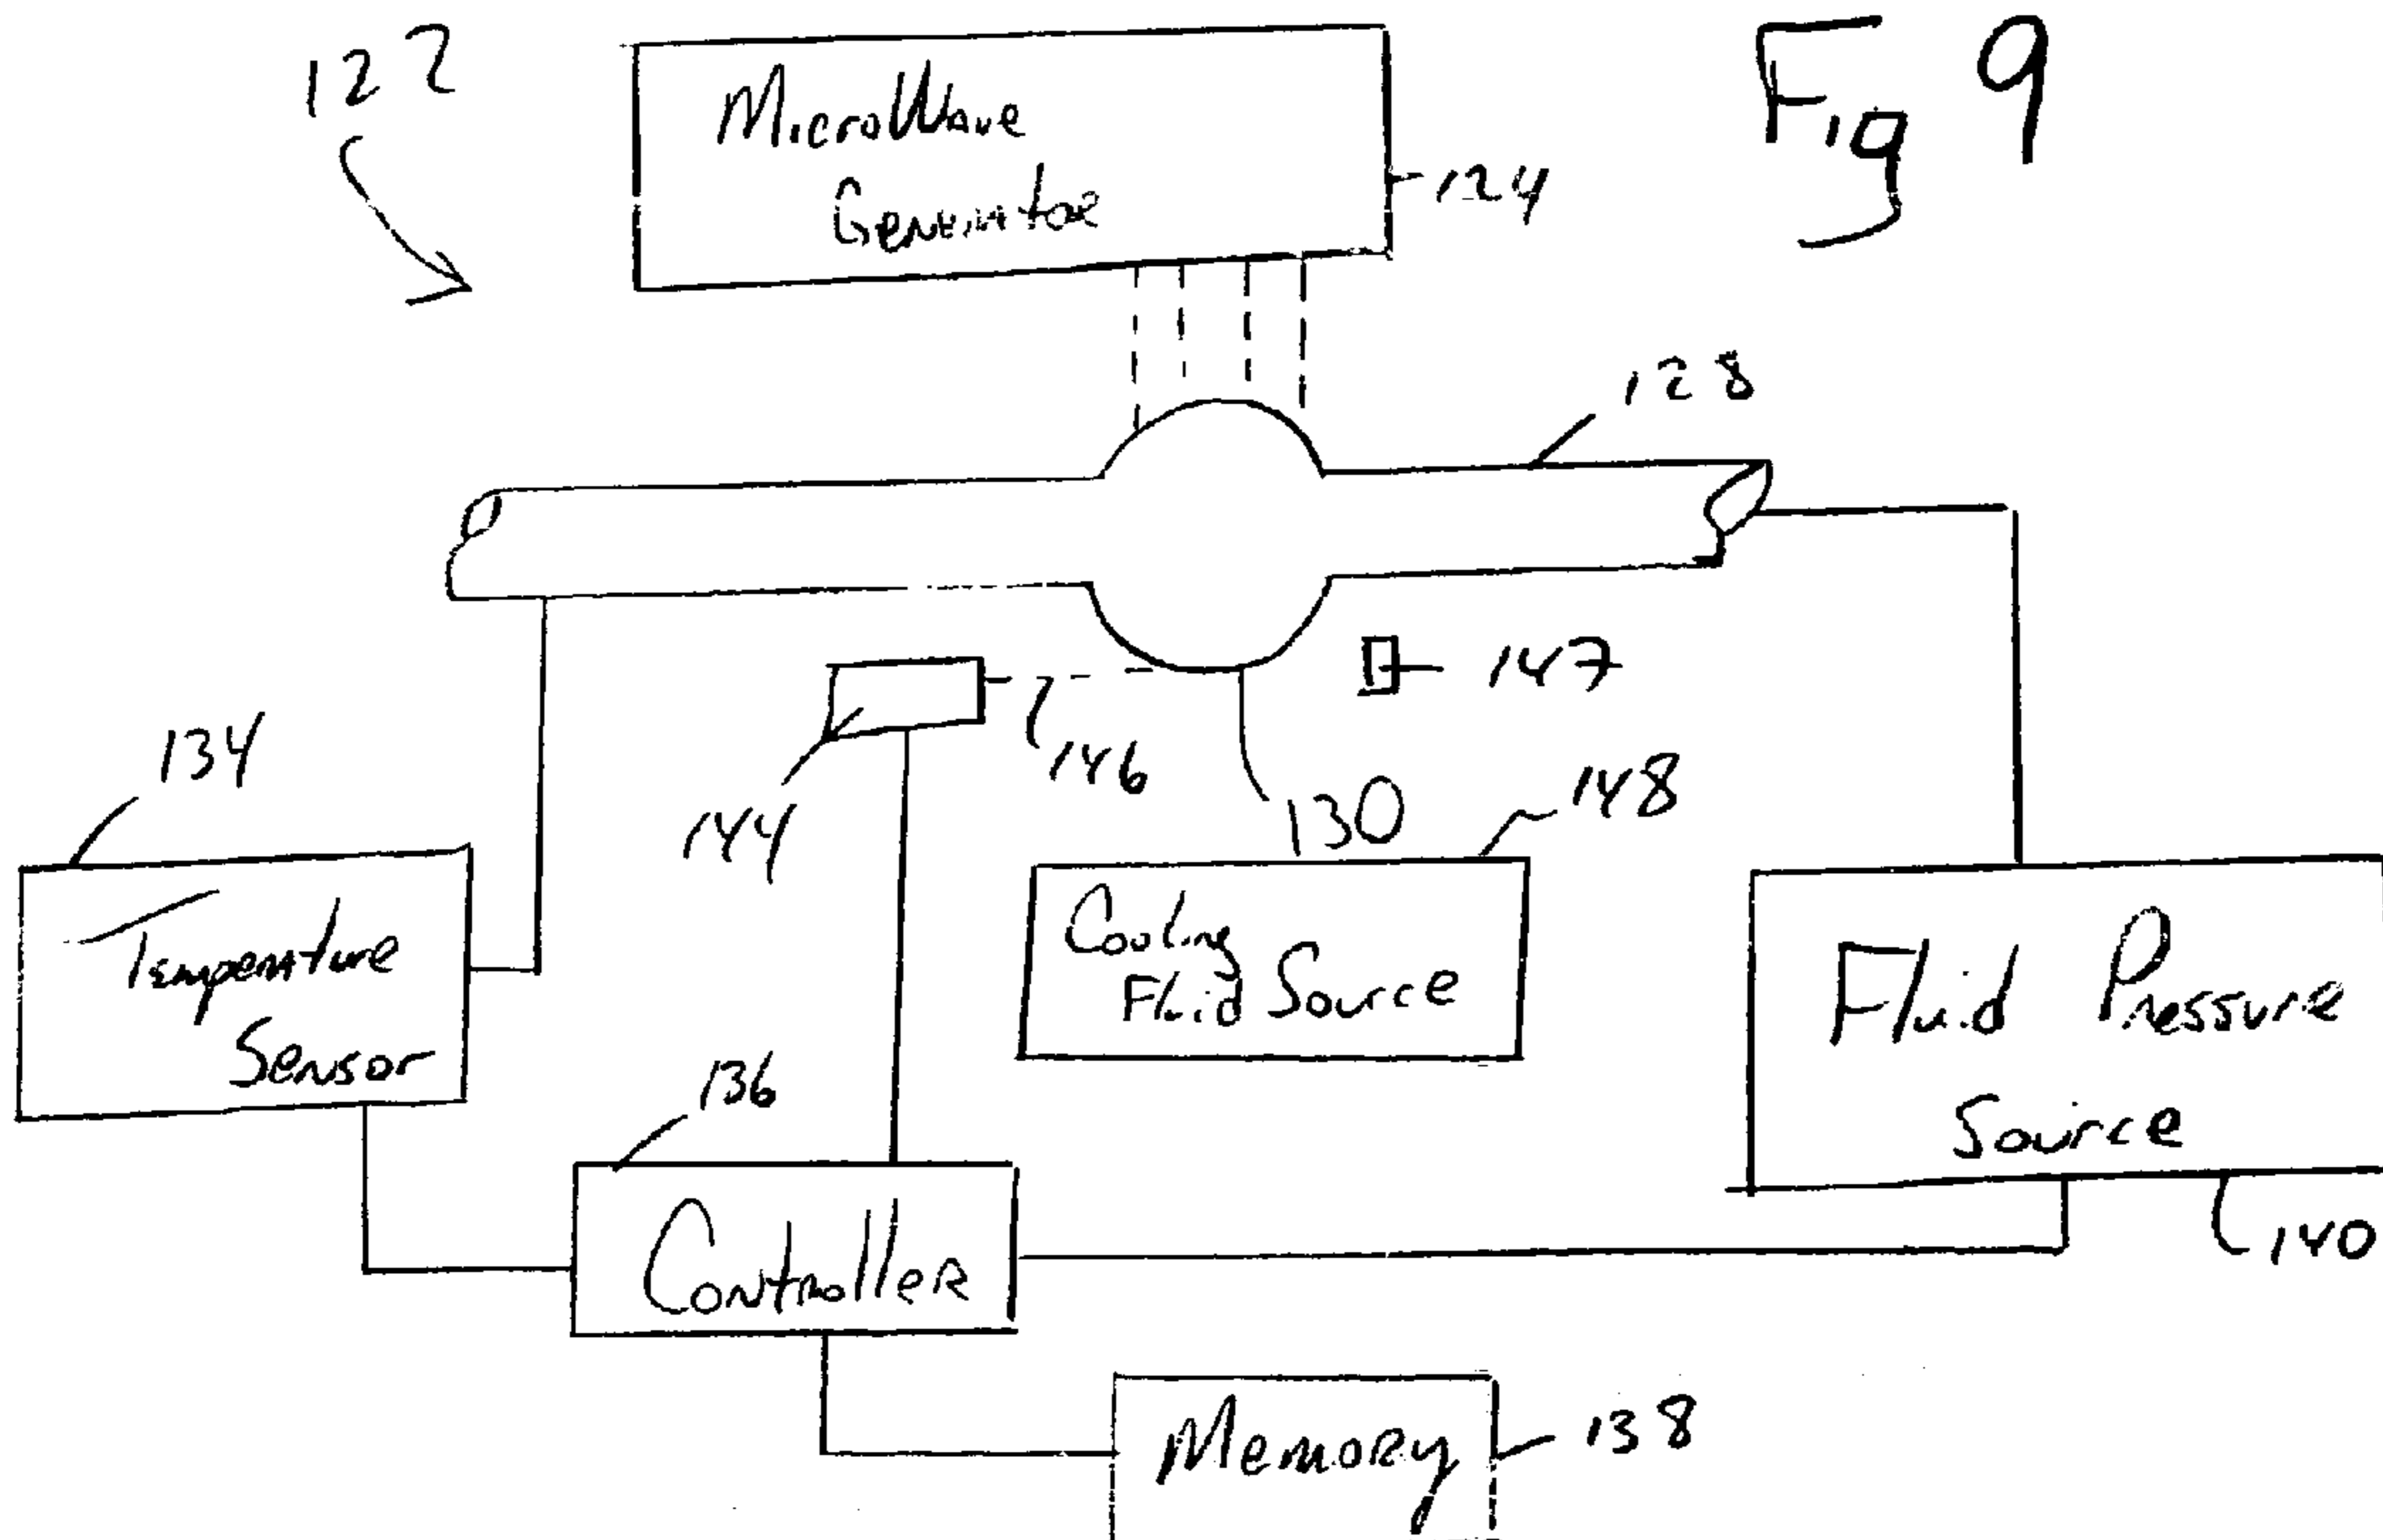 122
MicroWave
Generator
Fig 9
124
128
147
146
134
144
130
148
Temperature
Sensor
Cooling
Fluid Source
Fluid Pressure
Source
136
Controller
140
Memory
138